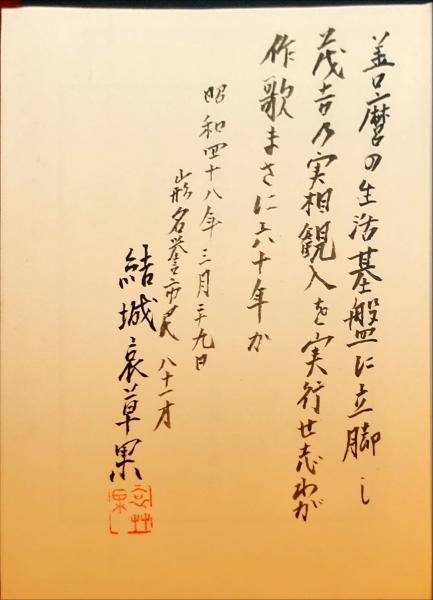 善麿の生活基盤に立脚し
茂吉の実相観入を実行せしわが
作歌まさに六十年か
昭和四十八年三月二十九日
山形名誉市民 八十一才
結城哀草果